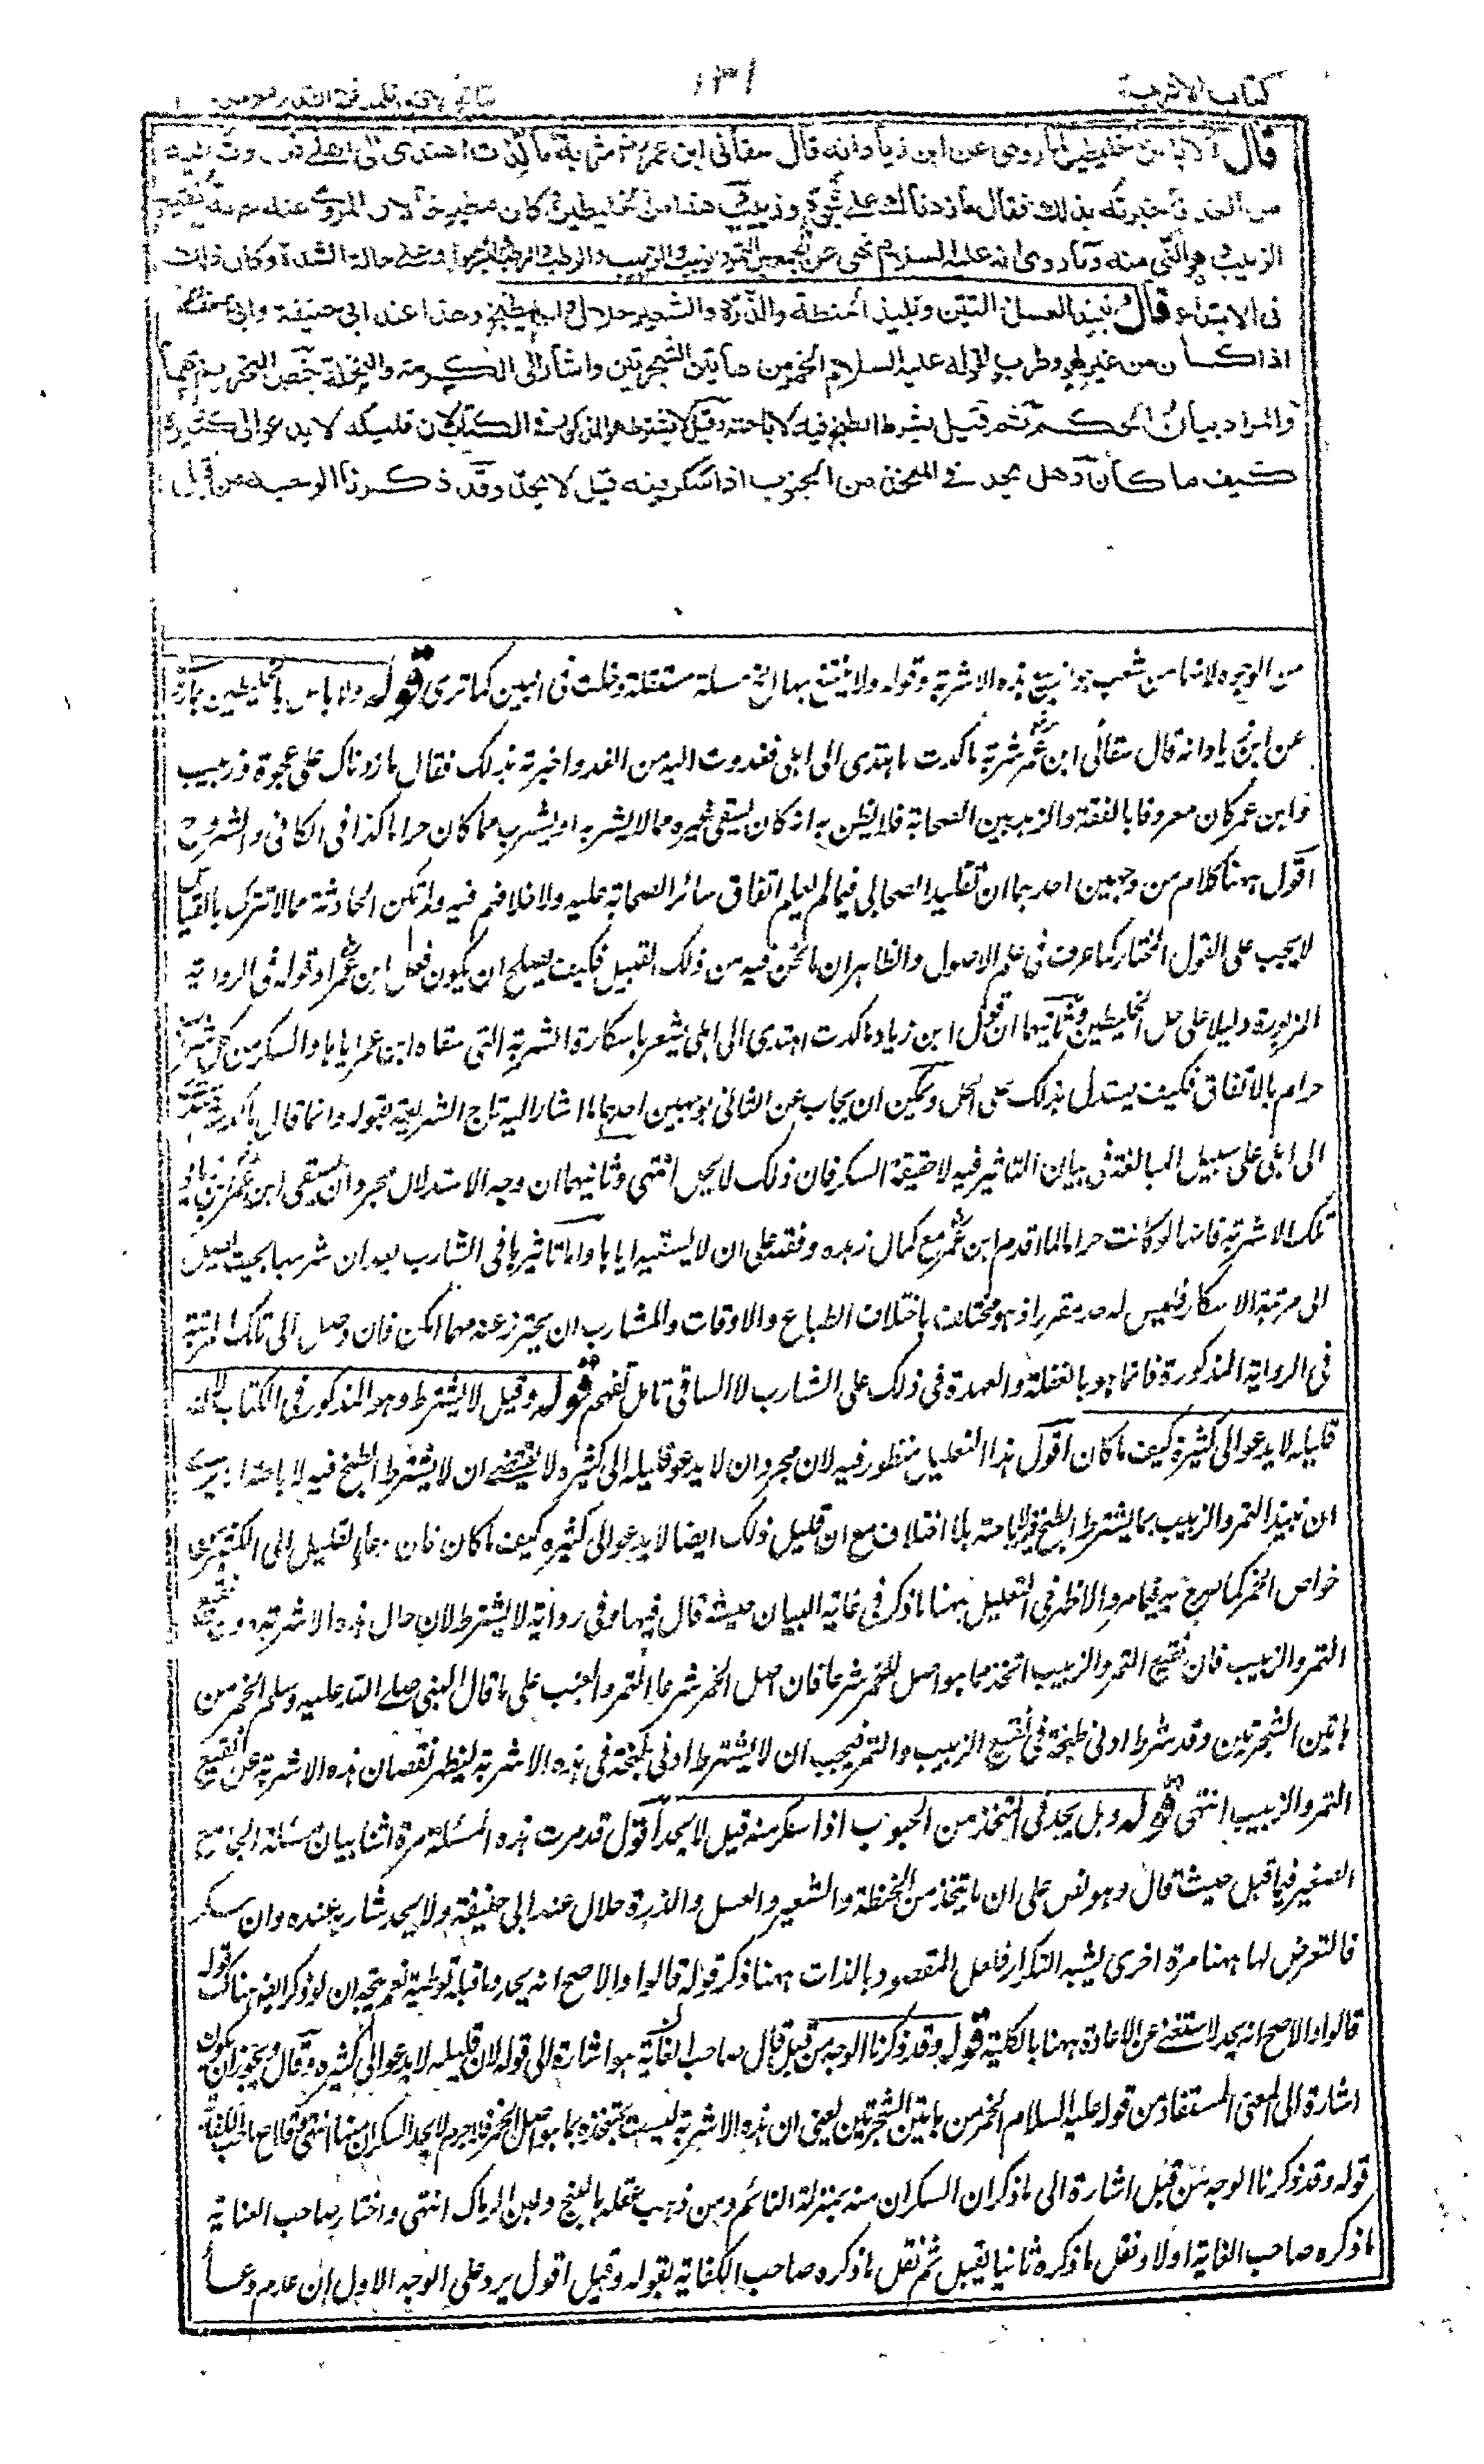 كتاب الاشربة
١٣١
قال ولا باس بالخليطين لما روى عن ابن زياد انه قال سقانى ابن عمر شربة ما كدت اهتدى الى اهلى فغدوت اليه
من الغد فاخبرته بذلك فقال ما زدناك على عجوة وزبيب وهذا من الخليطين وكان مطبوخا لان المروى عنه حرمة نقيع
الزبيب وهو النى منه وما روى انه عليه السلام نهى عن الجمع بين التمر والزبيب والزبيب والرطب والرطب والبسر محمول على حالة الشدة وكان ذلك
فى الابتداء قال ونبيذ العسل والتين ونبيذ الحنطة والذرة والشعير حلال وان لم يطبخ وهذا عند ابى حنيفة وابى يوسف
اذا كان من غير لهو وطرب لقوله عليه السلام الخمر من هاتين الشجرتين واشار الى الكرمة والنخلة خص التحريم بهما
والمراد بيان الحكم ثم قيل يشترط الطبخ فيه لاباحته وقيل لا يشترط وهو المذكور فى الكتاب لان قليله لا يدعو الى كثيره
كيف ما كان وهل يحد فى المتخذ من الحبوب اذا سكر منه قيل لا يحد وقد ذكرنا الوجه من قبل
من الوجوه لانها من شعب جواز بيع هذه الاشربة وقوله ولا ينتفع بها الخ مسئلة مستقلة دخلت فى البين كما ترى قوله ولا باس بالخليطين لما روى
عن ابن زياد انه قال سقانى ابن عمر شربة ما كدت اهتدى الى اهلى فغدوت اليه من الغد واخبرته بذلك فقال ما زدناك على عجوة وزبيب
وابن عمر كان معروفا بالفقه والزهد بين الصحابة فلا يظن به انه كان يسقى غيره مما لا يشربه او يشرب مما كان حراما كذا فى الكافى والشروح
اقول ههنا كلام من وجهين احدهما ان تقليد الصحابى فيما لم يعلم اتفاق سائر الصحابة عليه ولا خلافهم فيه ولم تكن الحادثة مما لا تترك بالقياس
لا يجب على القول المختار كما عرف فى علم الاصول والظاهر ان ما نحن فيه من ذلك القبيل فكيف يصلح ان يكون فعل ابن عمر او قوله فى الرواية
المزبورة دليلا على حل الخليطين وثانيهما ان قول ابن زياد ما كدت اهتدى الى اهلى يشعر باسكارة الشربة التى سقاه ابن عمر اياها والسكر من كل شراب
حرام بالاتفاق فكيف يستدل بذلك على الحل ويمكن ان يجاب عن الثانى بوجهين احدهما ما اشار اليه تاج الشريعة بقوله وانما قال ما كدت اهتدى
الى اهلى على سبيل المبالغة فى بيان التاثير فيه لا حقيقة السكر فان ذلك لا يحل انتهى وثانيهما ان وجه الاستدلال مجرد ان يسقى ابن عمر ابن زياد
تلك الاشربة فانها لو كانت حراما لما اقدم ابن عمر مع كمال زهده وفقهه على ان لا يسقيه اياها واما تاثيرها فى الشارب بعد ان شربها بحيث يصل
الى مرتبة الاسكار فليس له حد مقرر اذ هو مختلف باختلاف الطباع والاوقات والمشارب ان يحترز عنه مهما امكن فان وصل الى تلك المرتبة
فى الرواية المذكورة فانما هو بالغفلة والعهدة فى ذلك على الشارب لا الساقى تامل تفهم قوله وقيل لا يشترط وهو المذكور فى الكتاب لان
قليله لا يدعو الى كثيره كيف ما كان اقول هذا التعليل منظور فيه لان مجرد ان لا يدعو قليله الى كثيره لا يقتضى ان لا يشترط الطبخ فيه لاباحته
ان نبيذ التمر والزبيب مما يشترط الطبخ فيه لاباحته بلا اختلاف مع ان قليل ذلك ايضا لا يدعو الى كثيره كيف ما كان فان دعاء القليل الى الكثير من
خواص الخمر كما صرح به فيما مر والاظهر فى التعليل ههنا ما ذكر فى غاية البيان حيث قال فيها وفى رواية لا يشترط لان حال هذه الاشربة دون نقيع
التمر والزبيب فان نقيع التمر والزبيب اتخذ مما هو اصل للخمر شرعا فان اصل الخمر شرعا التمر والعنب على ما قال النبى صلى الله عليه وسلم الخمر من
هاتين الشجرتين وقد شرط ادنى طبخة فى نقيع الزبيب والتمر فيجب ان لا يشترط ادنى طبخة فى هذه الاشربة ليظهر نقصان هذه الاشربة عن نقيع
التمر والزبيب انتهى قوله وهل يحد فى المتخذ من الحبوب اذا سكر منه قيل لا يحد اقول قد مرت هذه المسئلة مرة اثناء بيان مسئلة الجامع
الصغير فيما قبل حيث قال وهو نص على ان ما يتخذ من الحنطة والشعير والعسل والذرة حلال عند ابى حنيفة ولا يحد شاربه عنده وان سكر
فالتعرض لها ههنا مرة اخرى يشبه التكرار فلعل المقصود بالذات ههنا ذكر قوله قالوا والاصح انه يحد وما قبله توطية نعم يتجه ان لو ذكر ايضا هناك قوله
قالوا والاصح انه يحد لاستغنى عن الاعادة ههنا بالكلية قوله وقد ذكرنا الوجه من قبل قال صاحب الغاية هو اشارة الى قوله لان قليله لا يدعو الى كثيره وقال ويجوز ان يكون
اشارة الى المعنى المستفاد من قوله عليه السلام الخمر من هاتين الشجرتين يعنى ان هذه الاشربة ليست بمتخذة مما هو اصل الخمر فلا جرم لا يحد السكران منها انتهى وقال صاحب الكفاية
قوله وقد ذكرنا الوجه من قبل اشارة الى ما ذكر ان السكران منه بمنزلة النائم ومن ذهب عقله بالبنج ولبن الرماك انتهى واختار صاحب العناية
ما ذكره صاحب الغاية اولا ونقل ما ذكره ثانيا بقيل ثم نقل ما ذكره صاحب الكفاية بقوله وقيل اقول يرد على الوجه الاول ان عدم دعاء